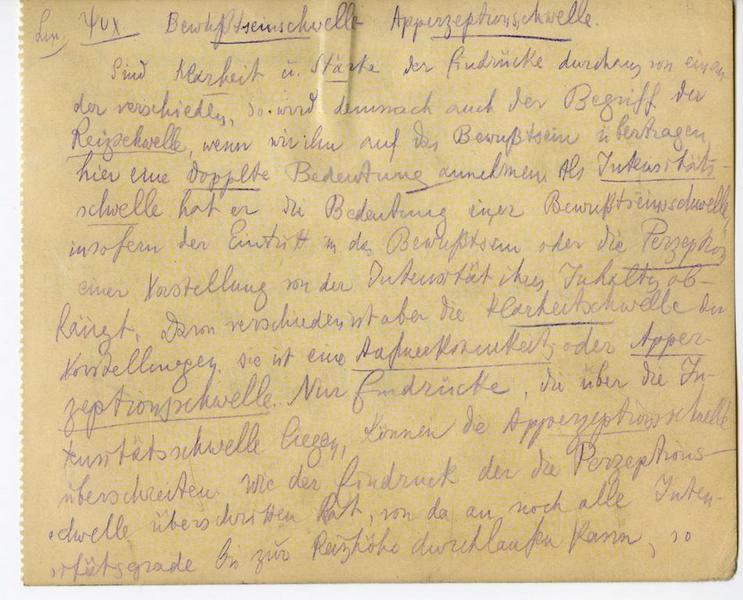 Bewußtseinsschwelle Apperzeptionsschwelle.
Sind Klarheit u. Stärke der Eindrücke durchaus von einan
der verschieden, so wird demnach auch der Begriff der
Reizschwelle, wenn wir ihn auf das Bewußtsein übertragen,
hier eine doppelte Bedeutung annehmen. Als Intensitäts-
schwelle hat er die Bedeutung einer Bewußtseinsschwelle,
insofern der Eintritt in das Bewußtsein oder die Perzeption
einer Vorstellung von der Intensität ihres Inhaltes ab-
hängt. Davon verschieden ist aber die Klarheitsschwelle der
Vorstellungen. sie ist eine Aufmerksamkeits oder Apper-
zeptionsschwelle. Nur Eindrücke, die über die In-
tensitätsschwelle liegen, können die Apperzeptionsschwelle
überschreiten. Wie der Eindruck der die Perzeptions-
schwelle überschritten hat, von da an noch alle Inten-
sitätsgrade bis zur Reizhöhe durchlaufen kann, so